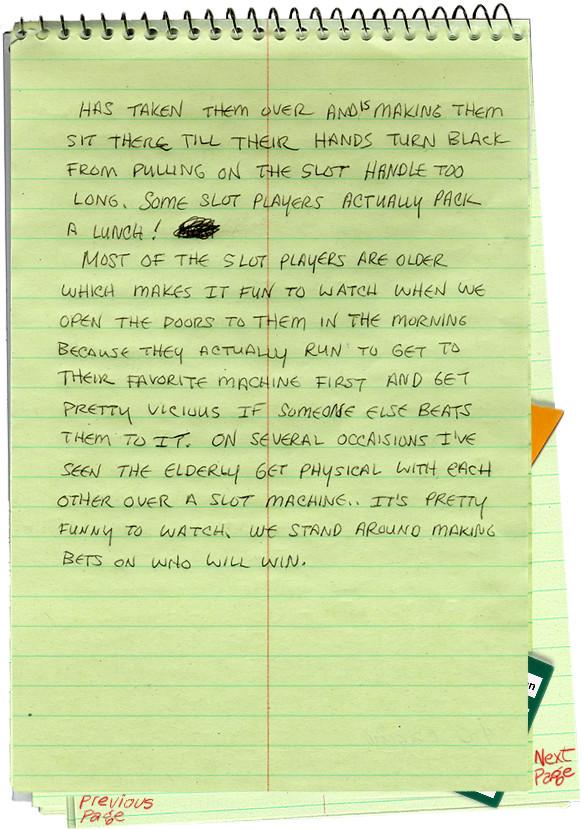 HAS TAKEN THEM OVER AND IS MAKING THEM
SIT THERE TILL THEIR HANDS TURN BLACK
FROM PULLING ON THE SLOT HANDLE TOO
LONG. SOME SLOT PLAYERS ACTUALLY PACK
A LUNCH!
MOST OF THE SLOT PLAYERS ARE OLDER
WHICH MAKES IT FUN TO WATCH WHEN WE
OPEN THE DOORS TO THEM IN THE MORNING
BECAUSE THEY ACTUALLY RUN TO GET TO
THEIR FAVORITE MACHINE FIRST AND GET
PRETTY VICIOUS IF SOMEONE ELSE BEATS
THEM TO IT. ON SEVERAL OCCAISIONS I'VE
SEEN THE ELDERLY GET PHYSICAL WITH EACH
OTHER OVER A SLOT MACHINE.. IT'S PRETTY
FUNNY TO WATCH. WE STAND AROUND MAKING
BETS ON WHO WILL WIN.
Next
Page
Previous
Page